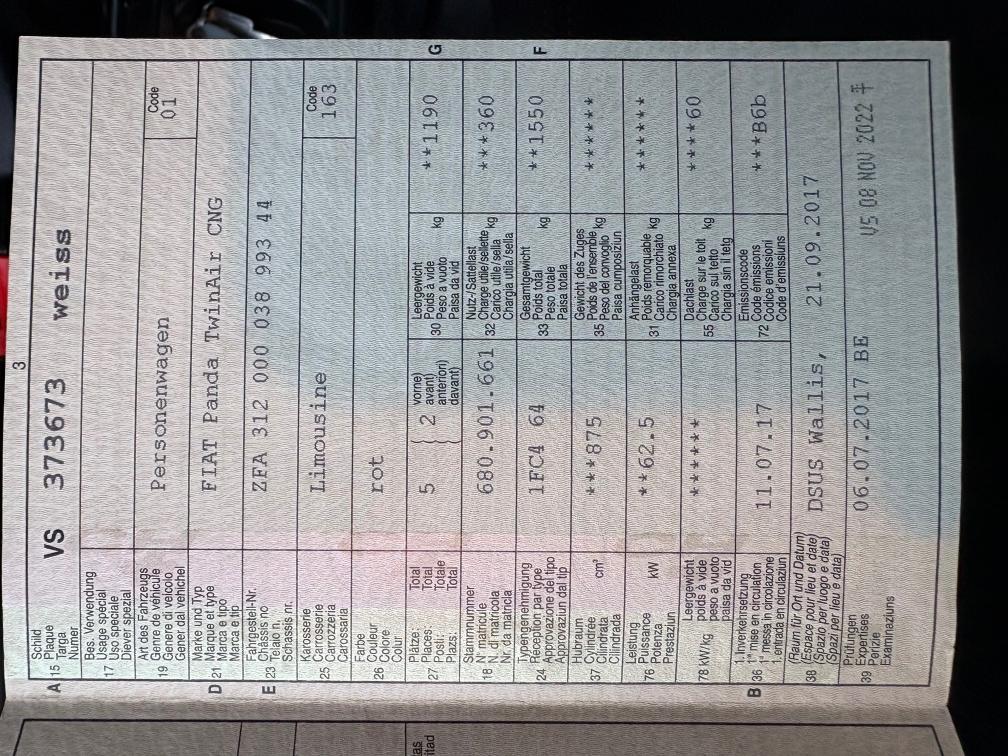 3
A 15 Schild
Plaque
Targa
Numer
VS 373673 weiss
17 Bes. Verwendung
Usage spécial
Uso speciale
Diever spezial
19 Art des Fahrzeugs
Genre de véhicule
Genere di veicolo
Gener da vehichel
Personenwagen
Code
01
D 21 Marke und Typ
Marque et type
Marca e tipo
Marca e tip
FIAT Panda TwinAir CNG
E 23 Fahrgestell-Nr.
Châssis no
Telaio n.
Schassis nr.
ZFA 312 000 038 993 44
25 Karosserie
Carrosserie
Carrozzeria
Carossaria
Limousine
Code
163
26 Farbe
Couleur
Colore
Colur
rot
27 Plätze: Total
Places: Total
Posti: Totale
Plazs: Total
5 { 2
vorne)
avant)
anteriori)
davant)
30 Leergewicht
Poids à vide
Peso a vuoto
Paisa da vid
kg
**1190
G
18 Stammnummer
N° matricule
N. di matricola
Nr. da matricla
680.901.661
32 Nutz-/Sattellast
Charge utile/sellette
Carico utile/sella
Chargia utila/sella
kg
***360
24 Typengenehmigung
Réception par type
Approvazione del tipo
Approvaziun dal tip
1FC4 64
33 Gesamtgewicht
Poids total
Peso totale
Paisa totala
kg
**1550
F
37 Hubraum
Cylindrée
Cilindrata
Cilindrada
cm³
***875
35 Gewicht des Zuges
Poids de l'ensemble
Peso del convoglio
Paisa cumposiziun
kg
******
76 Leistung
Puissance
Potenza
Prestaziun
kW
**62.5
31 Anhängelast
Poids remorquable
Carico rimorchiato
Chargia annexa
kg
******
78 kW/kg Leergewicht
poids à vide
peso a vuoto
paisa da vid
******
55 Dachlast
Charge sur le toit
Carico sul tetto
Chargia sin il tetg
kg
****60
B 36 1. Inverkehrsetzung
1re mise en circulation
1a messa in circolazione
1. entrada en circulaziun
11.07.17
72 Emissionscode
Code émissions
Codice emissioni
Code d'emissiuns
***B6b
38 (Raum für Ort und Datum)
(Espace pour lieu et date)
(Spazio per luogo e data)
(Spazi per lieu e data)
DSUS Wallis, 21.09.2017
39 Prüfungen
Expertises
Perizie
Examinaziuns
06.07.2017 BE
VS 08 NOV 2022
as
itad